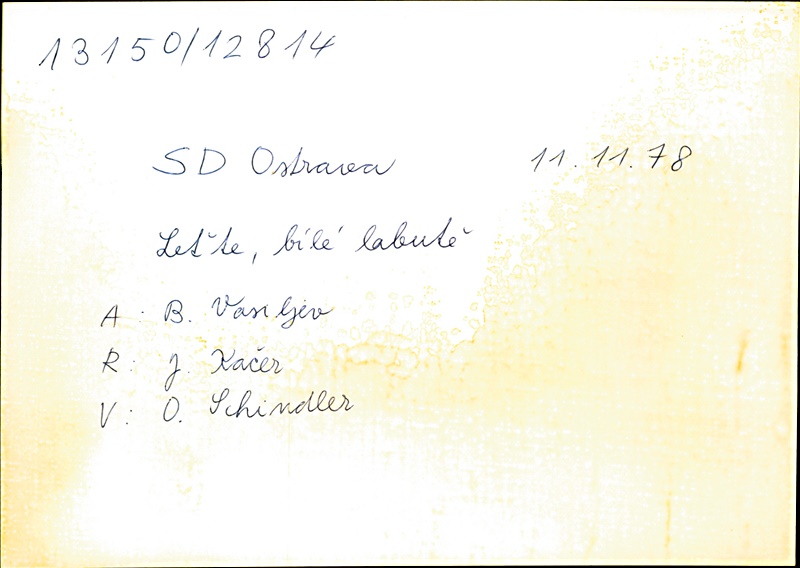 13150/12814
SD Ostrava 11.11.78
Leťte, bílé labutě
A: B. Vasiljev
R: J. Kačer
V: O. Schindler